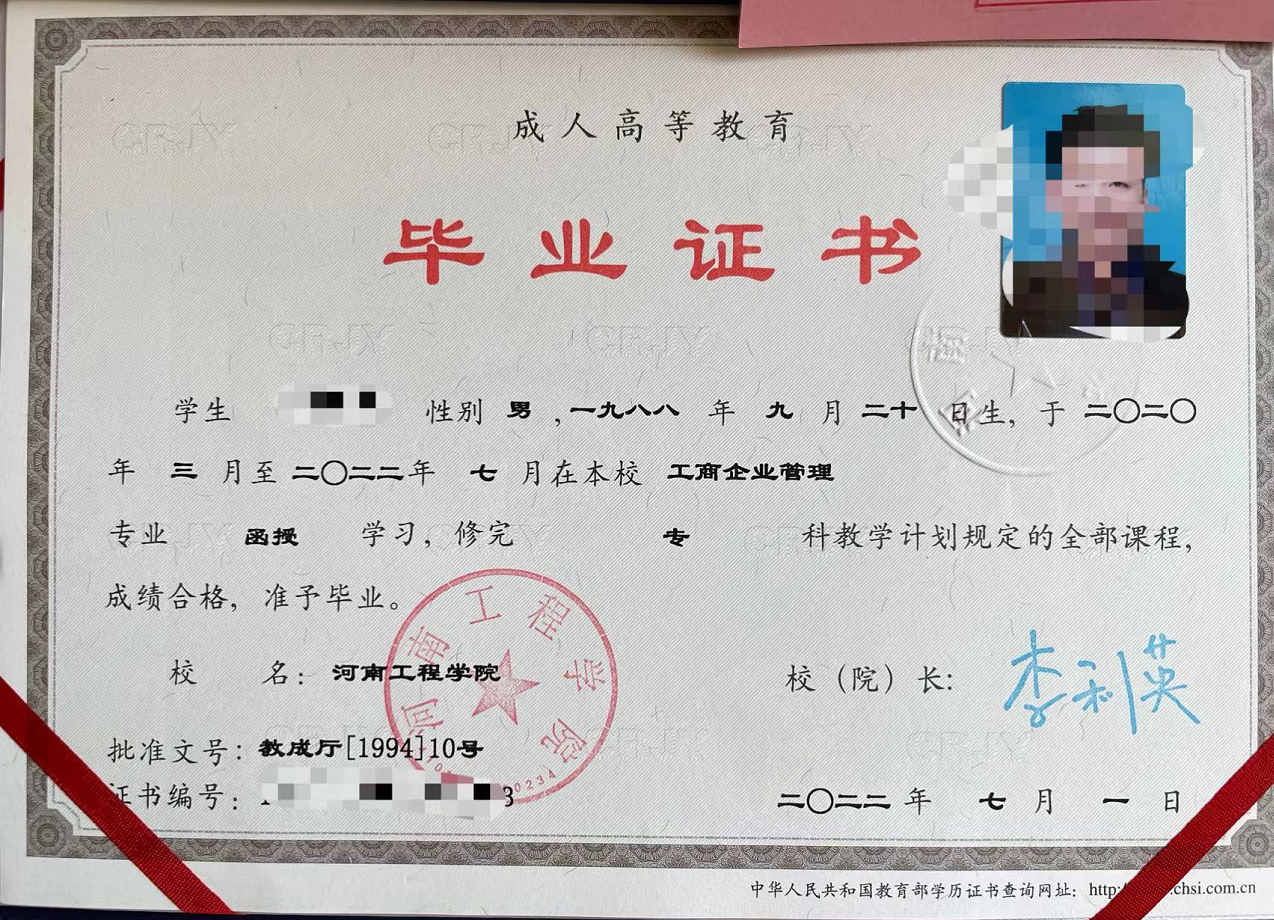 成人高等教育
毕业证书
学生 性别 男 ,一九八八 年 九 月 二十 日生，于 二〇二〇
年 三 月至 二〇二二年 七 月在本校 工商企业管理
专业 函授 学习，修完 专 科教学计划规定的全部课程，
成绩合格，准予毕业。
校 名：河南工程学院
校（院）长：李利英
批准文号：教成厅[1994]10号
证书编号： 3
二〇二二 年 七 月 一 日
河南工程学院
0234
中华人民共和国教育部学历证书查询网址：http:/ .chsi.com.cn
CRJY
CRJY
CRJY
CRJY
CRJY
CRJY
CRJY
CRJY
CRJY
CRJY
CRJY